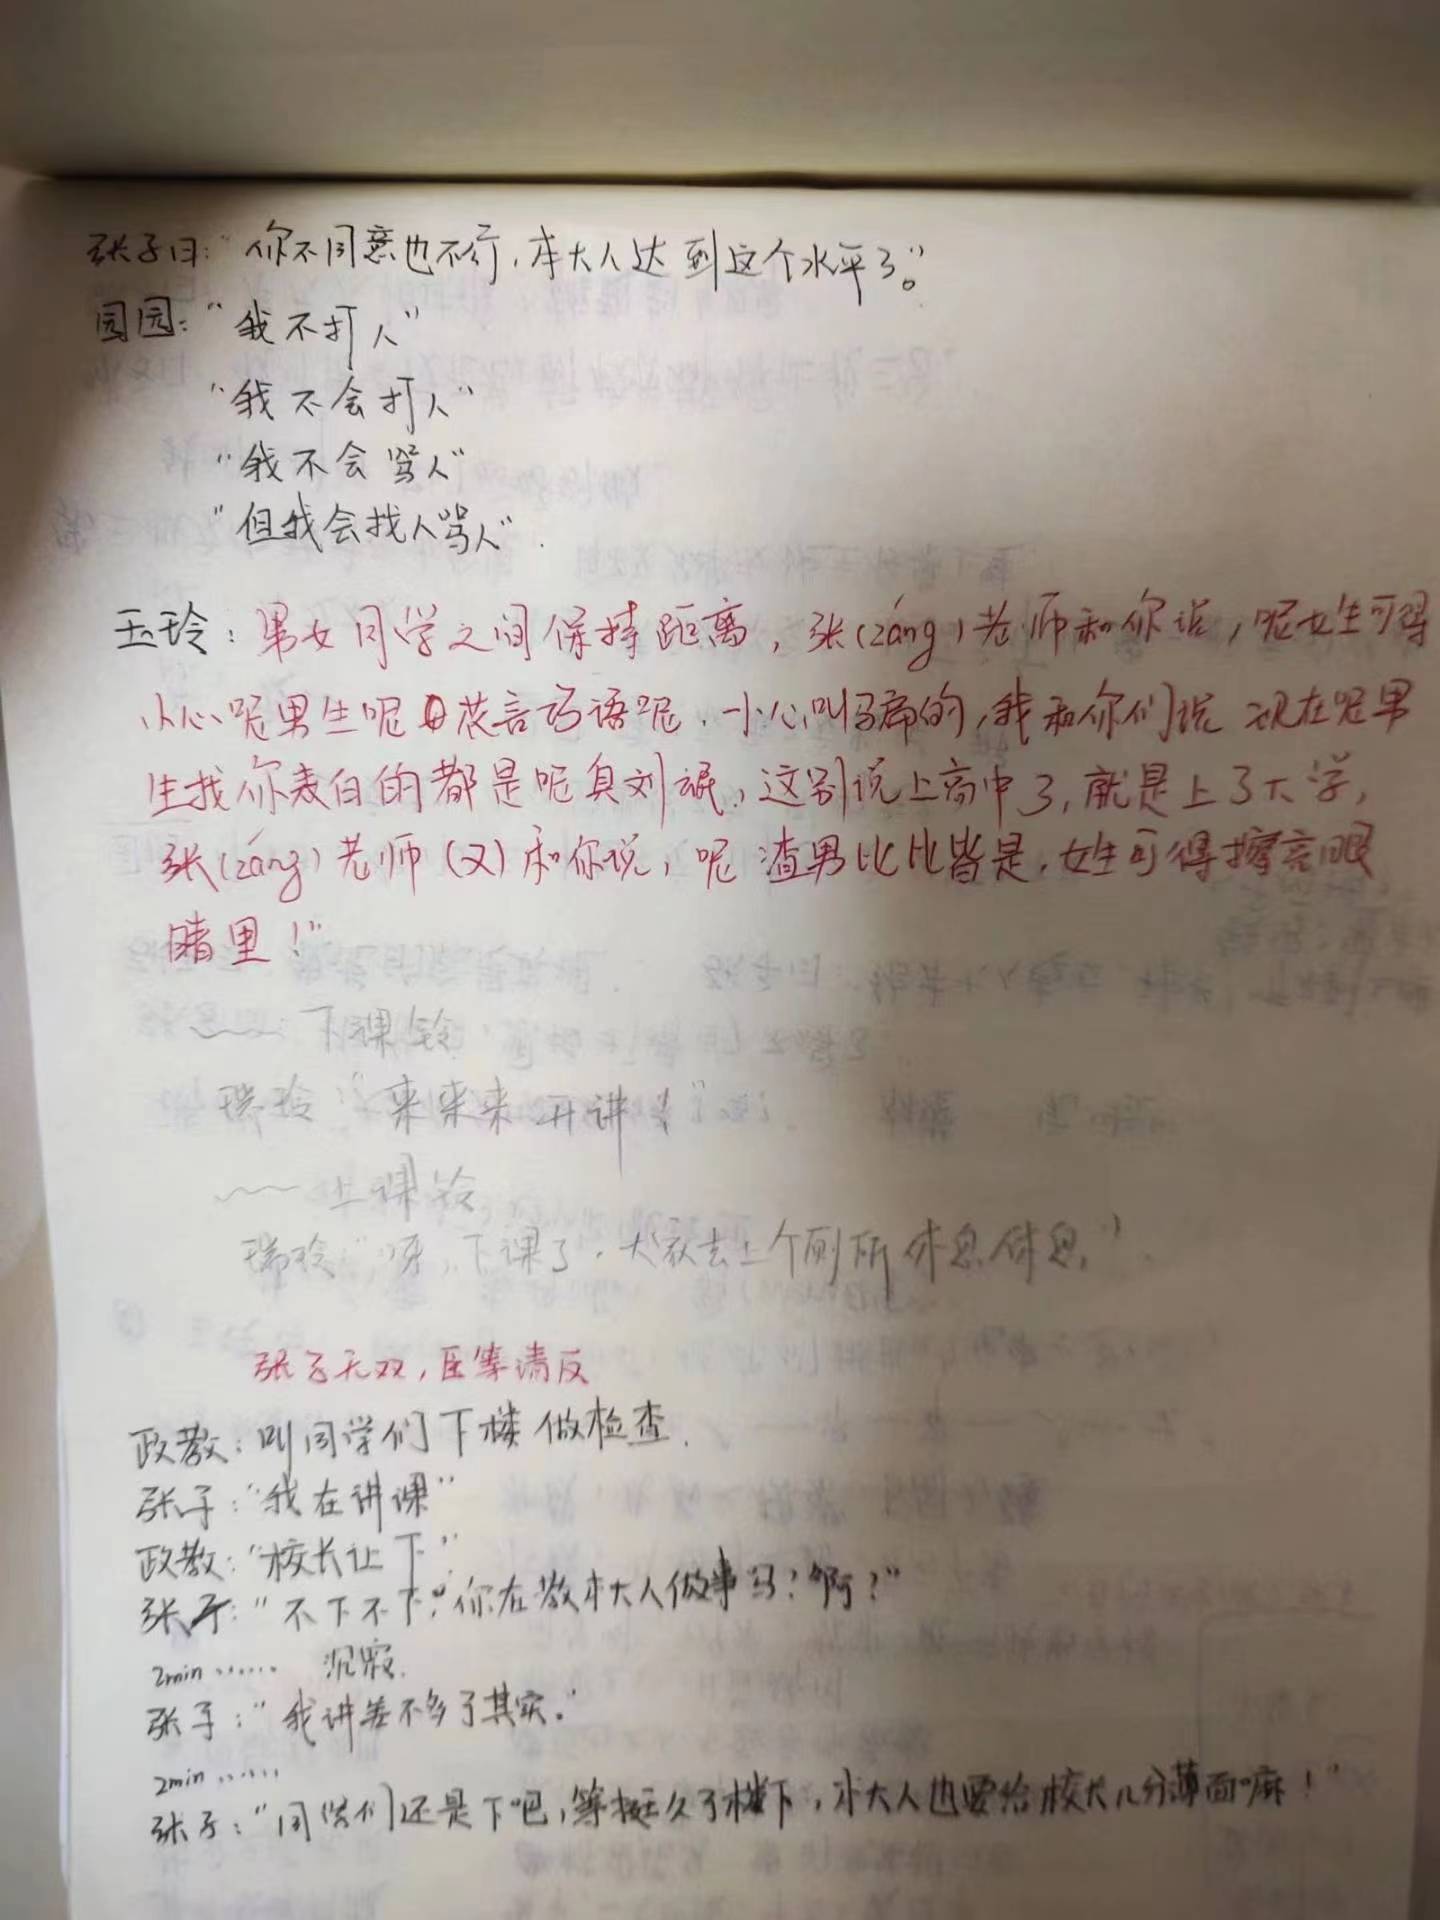 张子曰：“你不同意也不行，本大人达到这个水平了。”
园园：“我不打人”
“我不会打人”
“我不会骂人”
“但我会找人骂人”.
玉玲：男女同学之间保持距离，张(záng)老师和你说，呢女生可得
小心呢男生呢花言巧语呢，小心叫骗的，我和你们说 现在呢男
生找你表白的都是呢真刘氓，这别说上高中了，就是上了大学，
张(záng)老师(又)和你说，呢 渣男比比皆是，女生可得擦亮眼
睛里！”
~~~下课铃
瑞玲：“来来来 开讲！”
~~~上课铃
瑞玲：“呀，下课了，大家去上个厕所 休息休息。”
张子无双，臣等请反
政教：叫同学们下楼做检查.
张子：“我在讲课”
政教：“校长让下”
张子：“不下不下，你在教本大人做事吗？啊？”
2min…… 沉寂.
张子：“我讲差不多了其实.”
2min……
张子：“同学们还是下吧，等挺久了楼下，本大人也要给校长几分薄面嘛！”